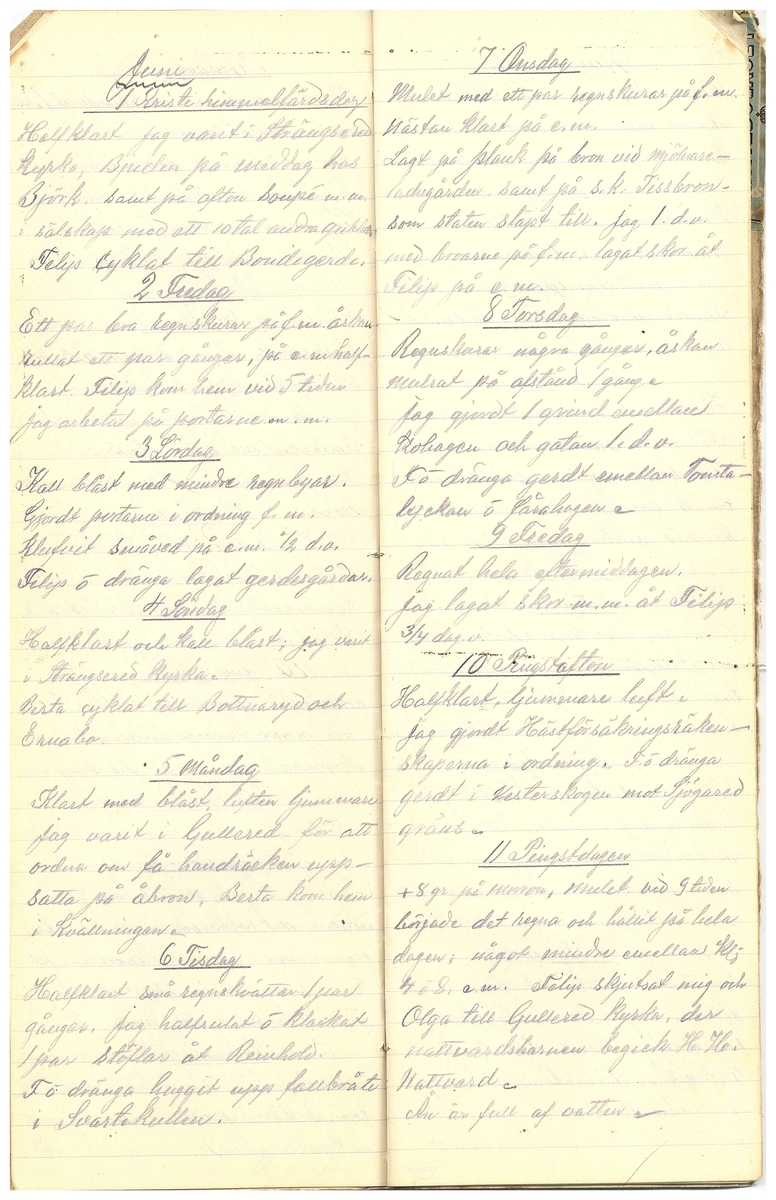 Juni
1 Kristi himmelfärdsdag
Halfklart jag varit i Strängsered
kyrka, Bjuden på middag hos
Björk. samt på afton soupé m.m.
i sälskap med ett 10 tal andra gubbar
Filip cyklat till Bondegerde.
2 Fredag
Ett par bra regnskurar på f.m. åskan
rullat ett par gånger, på e.m. half-
klart. Filip kom hem vid 5 tiden
jag arbetat på portarne m.m.
3 Lördag
Kall blåst med mindre regnbyar.
Gjordt portarne i ordning f.m.
klufvit småved på e.m. 1/2 d.v.
Filip ö dränga lagat gerdesgårdar.
4 Söndag
Halfklart och kall blåst; jag varit
i Strängsered kyrka.
Berta cyklat till Bottnaryd och
Ernabo.
5 Måndag
Klart med blåst, luften ljummare
jag varit i Gullered för att
ordna om få handräcken upp-
satta på åbron, Berta kom hem
i kvällningen.
6 Tisdag
Halfklart små regnskvättar 1 par
gånger. jag halfsulat ö klackat
1 par stöflar åt Reinhold.
F ö dränga hugget upp fallbråte
i Svartekullen.
7 Onsdag
Mulet med ett par regnskurar på f.m.
nästan klart på e.m.
Lagt på plank på bron vid mjölnare-
ladugården samt på s.k. Tissbron-
som staten släpt till. jag 1. d.v.
med broarne på f.m. lagat skor åt
Filip på e.m.
8 Torsdag
Regnskurar några gånger, åskan
mulrat på afstånd 1 gång
jag gjordt 1 grind emellan
Kohagen och gatan 1. d.v.
F ö dränga gerdt emellan Tomta-
lyckan ö fårahagen
9 Fredag
Regnat hela eftermiddagen.
jag lagat skor m.m. åt Filip
3/4 dag.v.
10 Pingstafton
Halfklart, ljummare luft.
jag gjordt Hästförsäkringsräken-
skaperna i ordning. F. ö dränga
gerdt i Vesterskogen mot Sjögared
gräns
11 Pingstdagen
+ 8 gr. på morron, mulet vid 9 tiden
började det regna och hållit på hela
dagen; något mindre emellan Klj
4 ö 8. e.m. Filip skjutsat mig och
Olga till Gullered kyrka, der
nattvardsbarnen begick H.H.
Nattvard
Ån är full af vatten